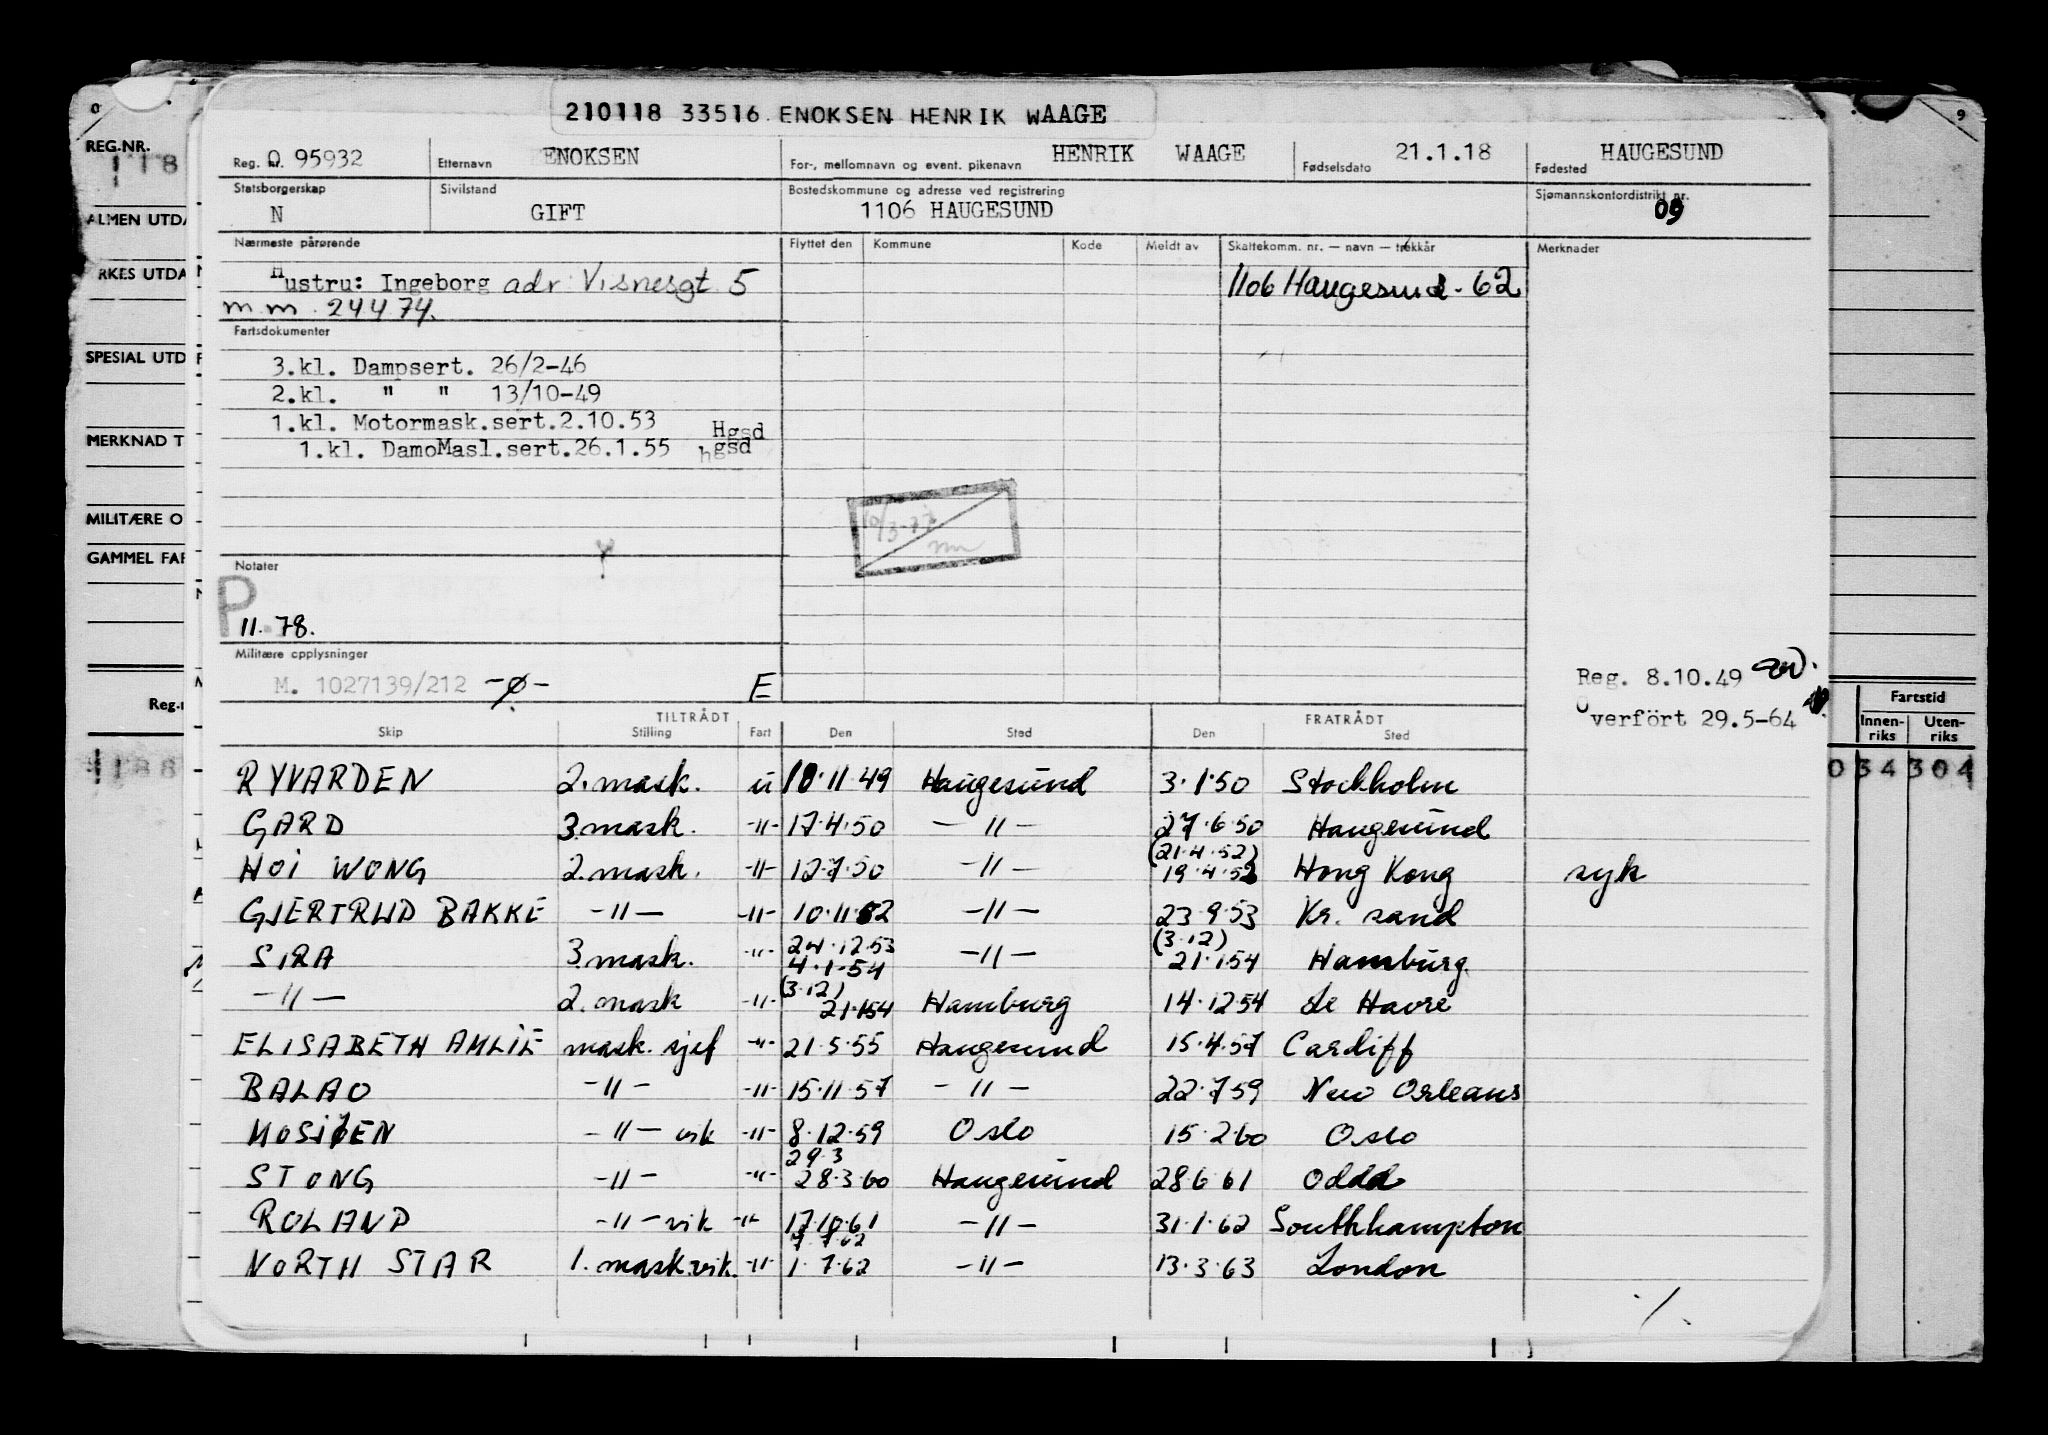 210118 33516 ENOKSEN HENRIK WAAGE
REG.NR.
118
Reg. nr. O 95932 Etternavn ENOKSEN For-, mellomnavn og event. pikenavn HENRIK WAAGE Fødselsdato 21.1.18 Fødested HAUGESUND
Statsborgerskap Sivilstand Bostedskommune og adresse ved registrering Sjømannskontordistrikt nr.
N GIFT 1106 HAUGESUND 09
ALMEN UTDA
RKES UTDA
SPESIAL UTD
MERKNAD T
MILITÆRE O
GAMMEL FAR
Reg.n
1188
Nærmeste pårørende Flyttet den Kommune Kode Meldt av Skattekomm. nr. — navn — trekkår Merknader
Hustru: Ingeborg adr Visnesgt 5 1106 Haugesund - 62
m m . 244 74.
Fartsdokumenter
3.kl. Dampsert. 26/2-46
2.kl. " " 13/10-49
1.kl. Motormask.sert.2.10.53 Hgsd
1.kl. DamoMasl.sert.26.1.55 hgsd
10/3-77
Notater
P
11.78.
Militære opplysninger
M. 1027139/212 -ø- E
Reg. 8.10.49
Overført 29.5-64
Fartstid
Innen-riks Uten-riks
0 34 304
TILTRÅDT FRATRÅDT
Skip Stilling Fart Den Sted Den Sted
RYVARDEN 2. mask. u 10.11.49 Haugesund 3.1.50 Stockholm
GARD 3. mask. -"- 17.4.50 -"- 27.6.50 Haugesund
(21.4.52)
HOI WONG 2. mask. -"- 12.7.50 -"- 19.4.52 Hong Kong syk
GJERTRUD BAKKE -"- -"- 10.11.52 -"- 23.9.53 Kr. sand
24.12.53 (3.12)
SIRA 3. mask. -"- 4.1-54 -"- 21.1.54 Hamburg.
(3.12)
-"- 2. mask -"- 21.1.54 Hamburg 14.12.54 Le Havre
ELISABETH AMLIE mask. sjef -"- 21.5.55 Haugesund 15.4.57 Cardiff
BALAO -"- -"- 15.11.57 -"- 22.7.59 New Orleans
MOSJØEN -"- vik -"- 8.12.59 Oslo 15.2.60 Oslo
29.3
STONG -"- -"- 28.3.60 Haugesund 28.6.61 Odda
ROLAND -"- vik -"- 17.10.61 -"- 31.1.62 Southhampton
7.7.62
NORTH STAR 1. mask.vik. -"- 1.7.62 -"- 13.3.63 London